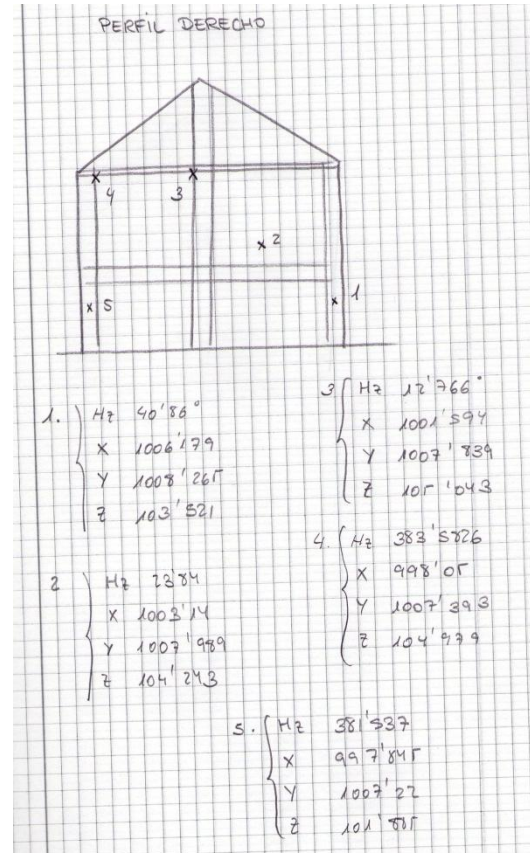 PERFIL DERECHO
4
3
2
5
1
1.
Hz 40'86°
X 1006'179
Y 1008'265
Z 103'521
2
Hz 23'84
X 1003'14
Y 1007'989
Z 104'243
3
Hz 12'766°
X 1001'594
Y 1007'839
Z 105'043
4.
Hz 383'5826
X 998'05
Y 1007'393
Z 104'979
5.
Hz 381'537
X 997'845
Y 1007'22
Z 101'885